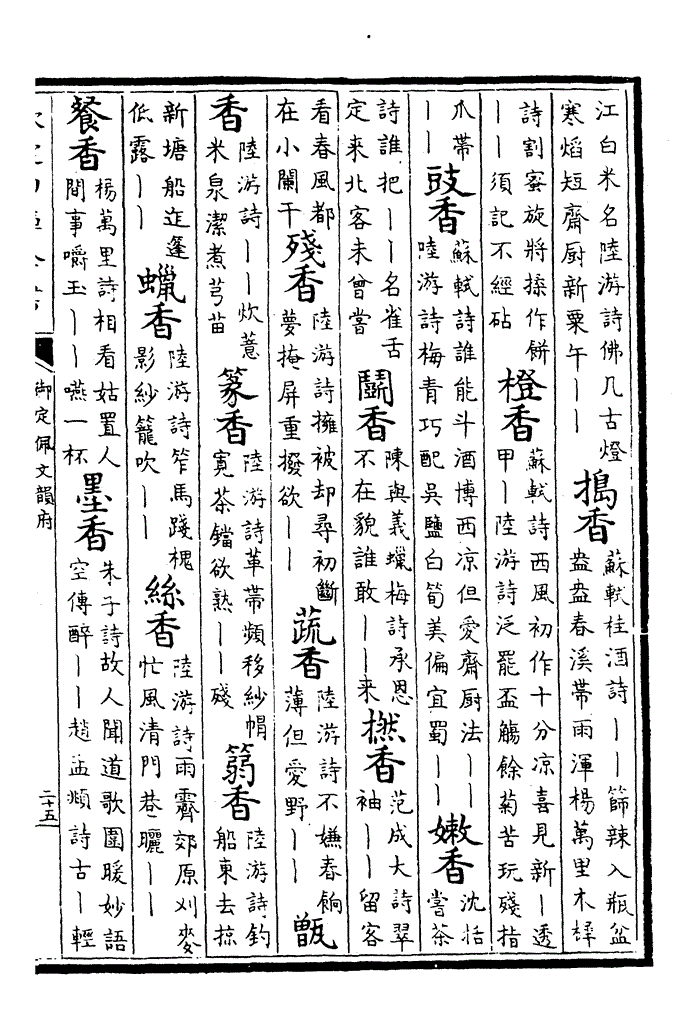 江白米名陸游詩佛几古燈
寒熖短齋厨新粟午丨丨
擣香
蘇軾桂酒詩丨丨篩辣入瓶盆
盎盎春溪帶雨渾楊萬里木樨
詩割蜜旋將搡作餅
丨丨須記不經砧
橙香
蘇軾詩西風初作十分凉喜見新丨透
甲丨陸游詩泛罷盃觴餘菊苦玩殘指
爪帶
丨丨
豉香
蘇軾詩誰能斗酒博西凉但愛齋厨法丨丨
陸游詩梅青巧配吳鹽白筍美偏宜蜀丨丨
嫩香
沈括
嘗茶
詩誰把丨丨名雀舌
定來北客未曾嘗
鬭香
陳與義蠟梅詩承恩
不在貌誰敢丨丨來
撚香
范成大詩翠
袖丨丨留客
看春風都
在小闌干
殘香
陸游詩擁被却尋初斷
夢掩屏重撥欲丨丨
蔬香
陸游詩不嫌春餉
薄但愛野丨丨
甑
香
陸游詩丨丨炊薏
米泉潔煮芎苗
篆香
陸游詩革帶頻移紗帽
寛茶鐺欲熟丨丨殘
篛香
陸游詩釣
船東去掠
新塘船迮篷
低露丨丨
蠟香
陸游詩笮馬踐槐
影紗籠吹丨丨
絲香
陸游詩雨霽郊原刈麥
忙風清門巷曬丨丨
餐香
楊萬里詩相看姑置人
間事嚼玉丨丨嚥一杯
墨香
朱子詩故人聞道歌圍暖妙語
空傳醉丨丨趙孟頫詩古丨輕
御定佩文韻府
二十五